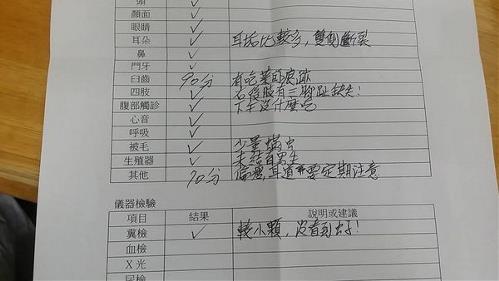 頭 ✓
顏面 ✓
眼睛 ✓
耳朵 ✓ 耳垢比較多，雙側斷裂
鼻 ✓
門牙 ✓
臼齒 90分 有咬
四肢 ✓ 右後肢有三腳趾缺失!
腹部觸診 ✓ 下午沒什麼吃
心音 ✓
呼吸 ✓
被毛 ✓ 少量
生殖器 ✓ 未結育男生
其他 70分 偏瘦，耳道要定期注意
儀器檢驗
項目 結果 說明或建議
糞檢 ✓ 較小顆，沒看到
血檢
X光
尿檢